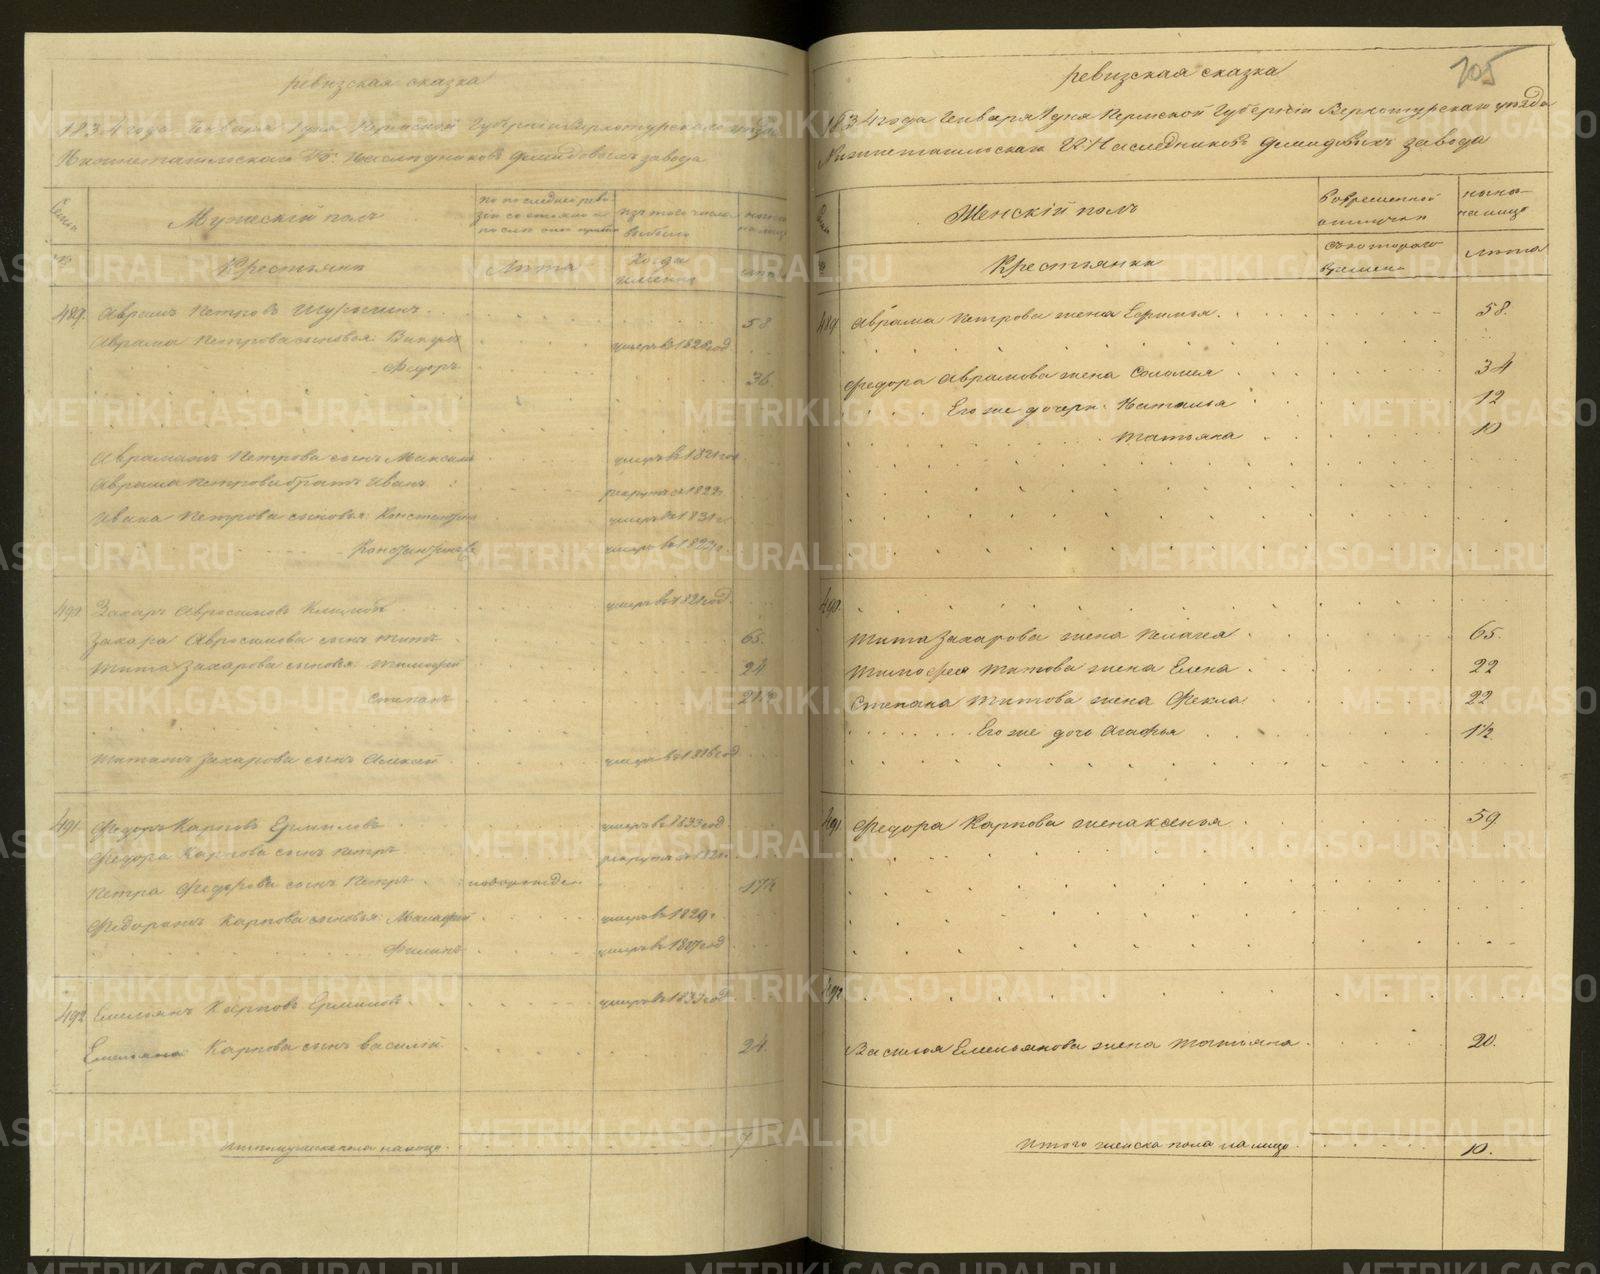 ревизская сказка
1834 года Генваря 1 дня Пермской Губернии Верхотурскаго уезда
Нижнетагильскаго Гг. Наследниковъ Демидовыхъ завода
Семьи
Мужескій полъ
по последней ревизіи состояло и после оной прибыло
изъ того числа выбыло
ныне на лицо
№
Крестьяне
Лѣта
Когда именно
лѣта
489. Аврамъ Петровъ 58
Аврама Петрова сыновья: Викулъ умеръ въ 1828 год
Федоръ 36
Аврамаже Петрова сынъ Максимъ умеръ въ 1821 год
Аврама Петрова братъ Иванъ рекрутъ съ 1822 г
Ивана Петрова сыновья: Константинъ умеръ въ 1831 г
умеръ въ
490 Захаръ Авросимовъ умеръ въ 1821 год
Захара Авросимова сынъ Титъ 65.
Тита Захарова сыновья Тимофей 24
Степанъ 21
Титаже Захарова сынъ Алексей умеръ въ год
491 Федоръ Карповъ Ермиловъ умеръ въ 1833 год
Федора Карпова сынъ Петръ рекрутъ съ
Петра Федорова сынъ Петръ новорожде. 17½
Федораже Карпова сыновья: Малафей умеръ въ 1829 г
Филипъ умеръ въ год
492 Емельянъ Карповъ Ермиловъ умеръ въ 1833 год
Емельяна Карпова сынъ Василій 24.
Итого мужеска пола на лицо. 7
705
ревизская сказка
1834 года Генваря 1 дня Пермской Губерніи Верхотурскаго уезда
Нижнетагильскаго Гг. Наследниковъ Демидовыхъ завода
Семьи
Женскій полъ
Во временной отлучке
ныне на лицо
№
Крестьянки
съ котораго времени
лѣта
489. Аврама Петрова жена Ефимья. 58.
Федора Аврамова жена Соломея 34
Его же дочери: Наталья 12
Татьяна 10
490.
Тита Захарова жена Пелагея. 65.
Тимофея Титова жена Елена. 22
Степана Титова жена Фекла 22
Его же дочь Агафья 1½
491. Федора Карпова жена Ксенья 59
492.
Василья Емельянова жена Татьяна. 20.
Итого женска пола на лицо. 10.
METRIKI.GASO-URAL.RU